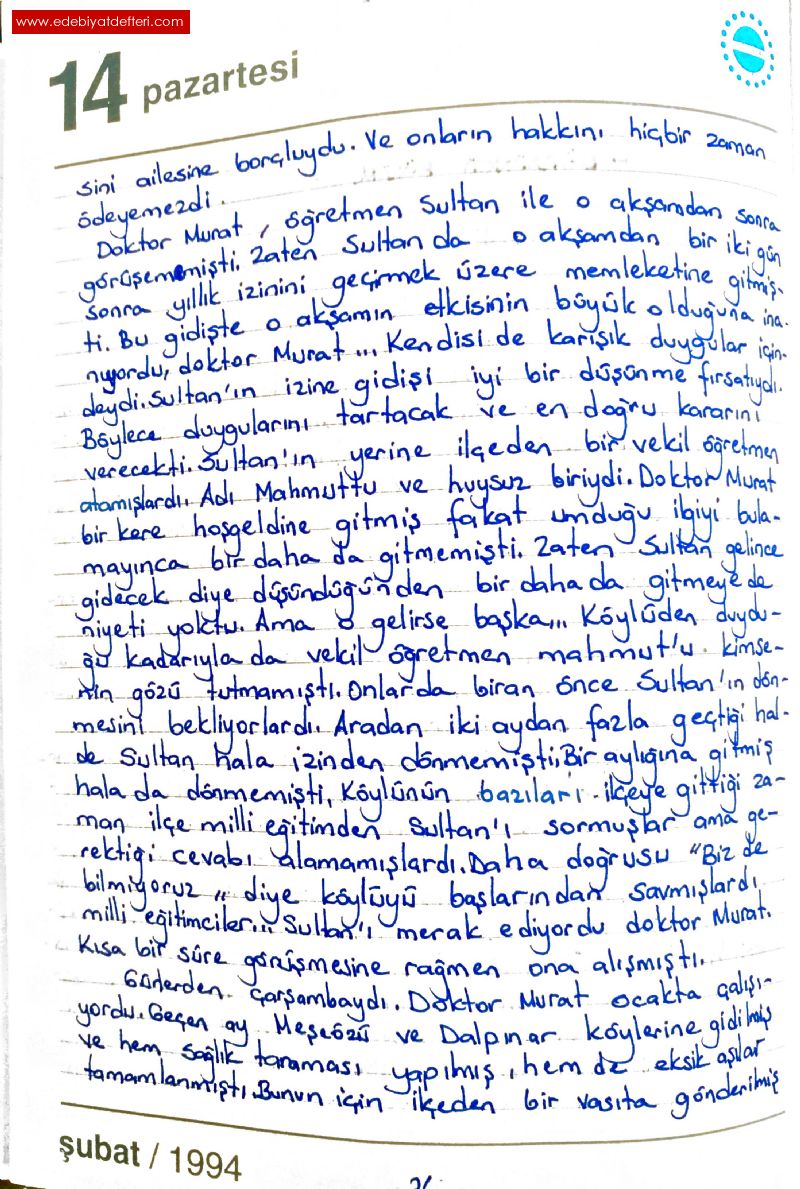 www.edebiyatdefteri.com
14 pazartesi
sini ailesine borçluydu. Ve onların hakkını hiçbir zaman
ödeyemezdi.
Doktor Murat, öğretmen Sultan ile o akşamdan sonra
görüşememişti. Zaten Sultan da o akşamdan bir iki gün
sonra yıllık izinini geçirmek üzere memleketine gitmiş-
ti. Bu gidişte o akşamın etkisinin büyük olduğuna ina-
nıyordu, doktor Murat... Kendisi de karışık duygular için-
deydi. Sultan'ın izine gidişi iyi bir düşünme fırsatıydı.
Böylece duygularını tartacak ve en doğru kararını
verecekti. Sultan'ın yerine ilçeden bir vekil öğretmen
atamışlardı. Adı Mahmuttu ve huysuz biriydi. Doktor Murat
bir kere hoşgeldine gitmiş fakat umduğu ilgiyi bula-
mayınca bir daha da gitmemişti. Zaten Sultan gelince
gidecek diye düşündüğünden bir daha da gitmeye de
niyeti yoktu. Ama o gelirse başka... Köylüden duydu-
ğu kadarıyla da vekil öğretmen mahmut'u kimse-
nin gözü tutmamıştı. Onlar da biran önce Sultan'ın dön-
mesini bekliyorlardı. Aradan iki aydan fazla geçtiği hal-
de Sultan hala izinden dönmemişti. Bir aylığına gitmiş
hala da dönmemişti. Köylünün bazıları ilçeye gittiği za-
man ilçe milli eğitimden Sultan'ı sormuşlar ama ge-
rektiği cevabı alamamışlardı. Daha doğrusu "Biz de
bilmiyoruz" diye köylüyü başlarından savmışlardı
milli eğitimciler... Sultan'ı merak ediyordu doktor Murat.
Kısa bir süre görüşmesine rağmen ona alışmıştı.
Günlerden çarşambaydı. Doktor Murat ocakta çalışı-
yordu. Geçen ay Meşeözü ve Dalpınar köylerine gidilmiş
ve hem sağlık taraması yapılmış, hem de eksik aşılar
tamamlanmıştı. Bunun için ilçeden bir vasıta gönderilmiş
şubat / 1994